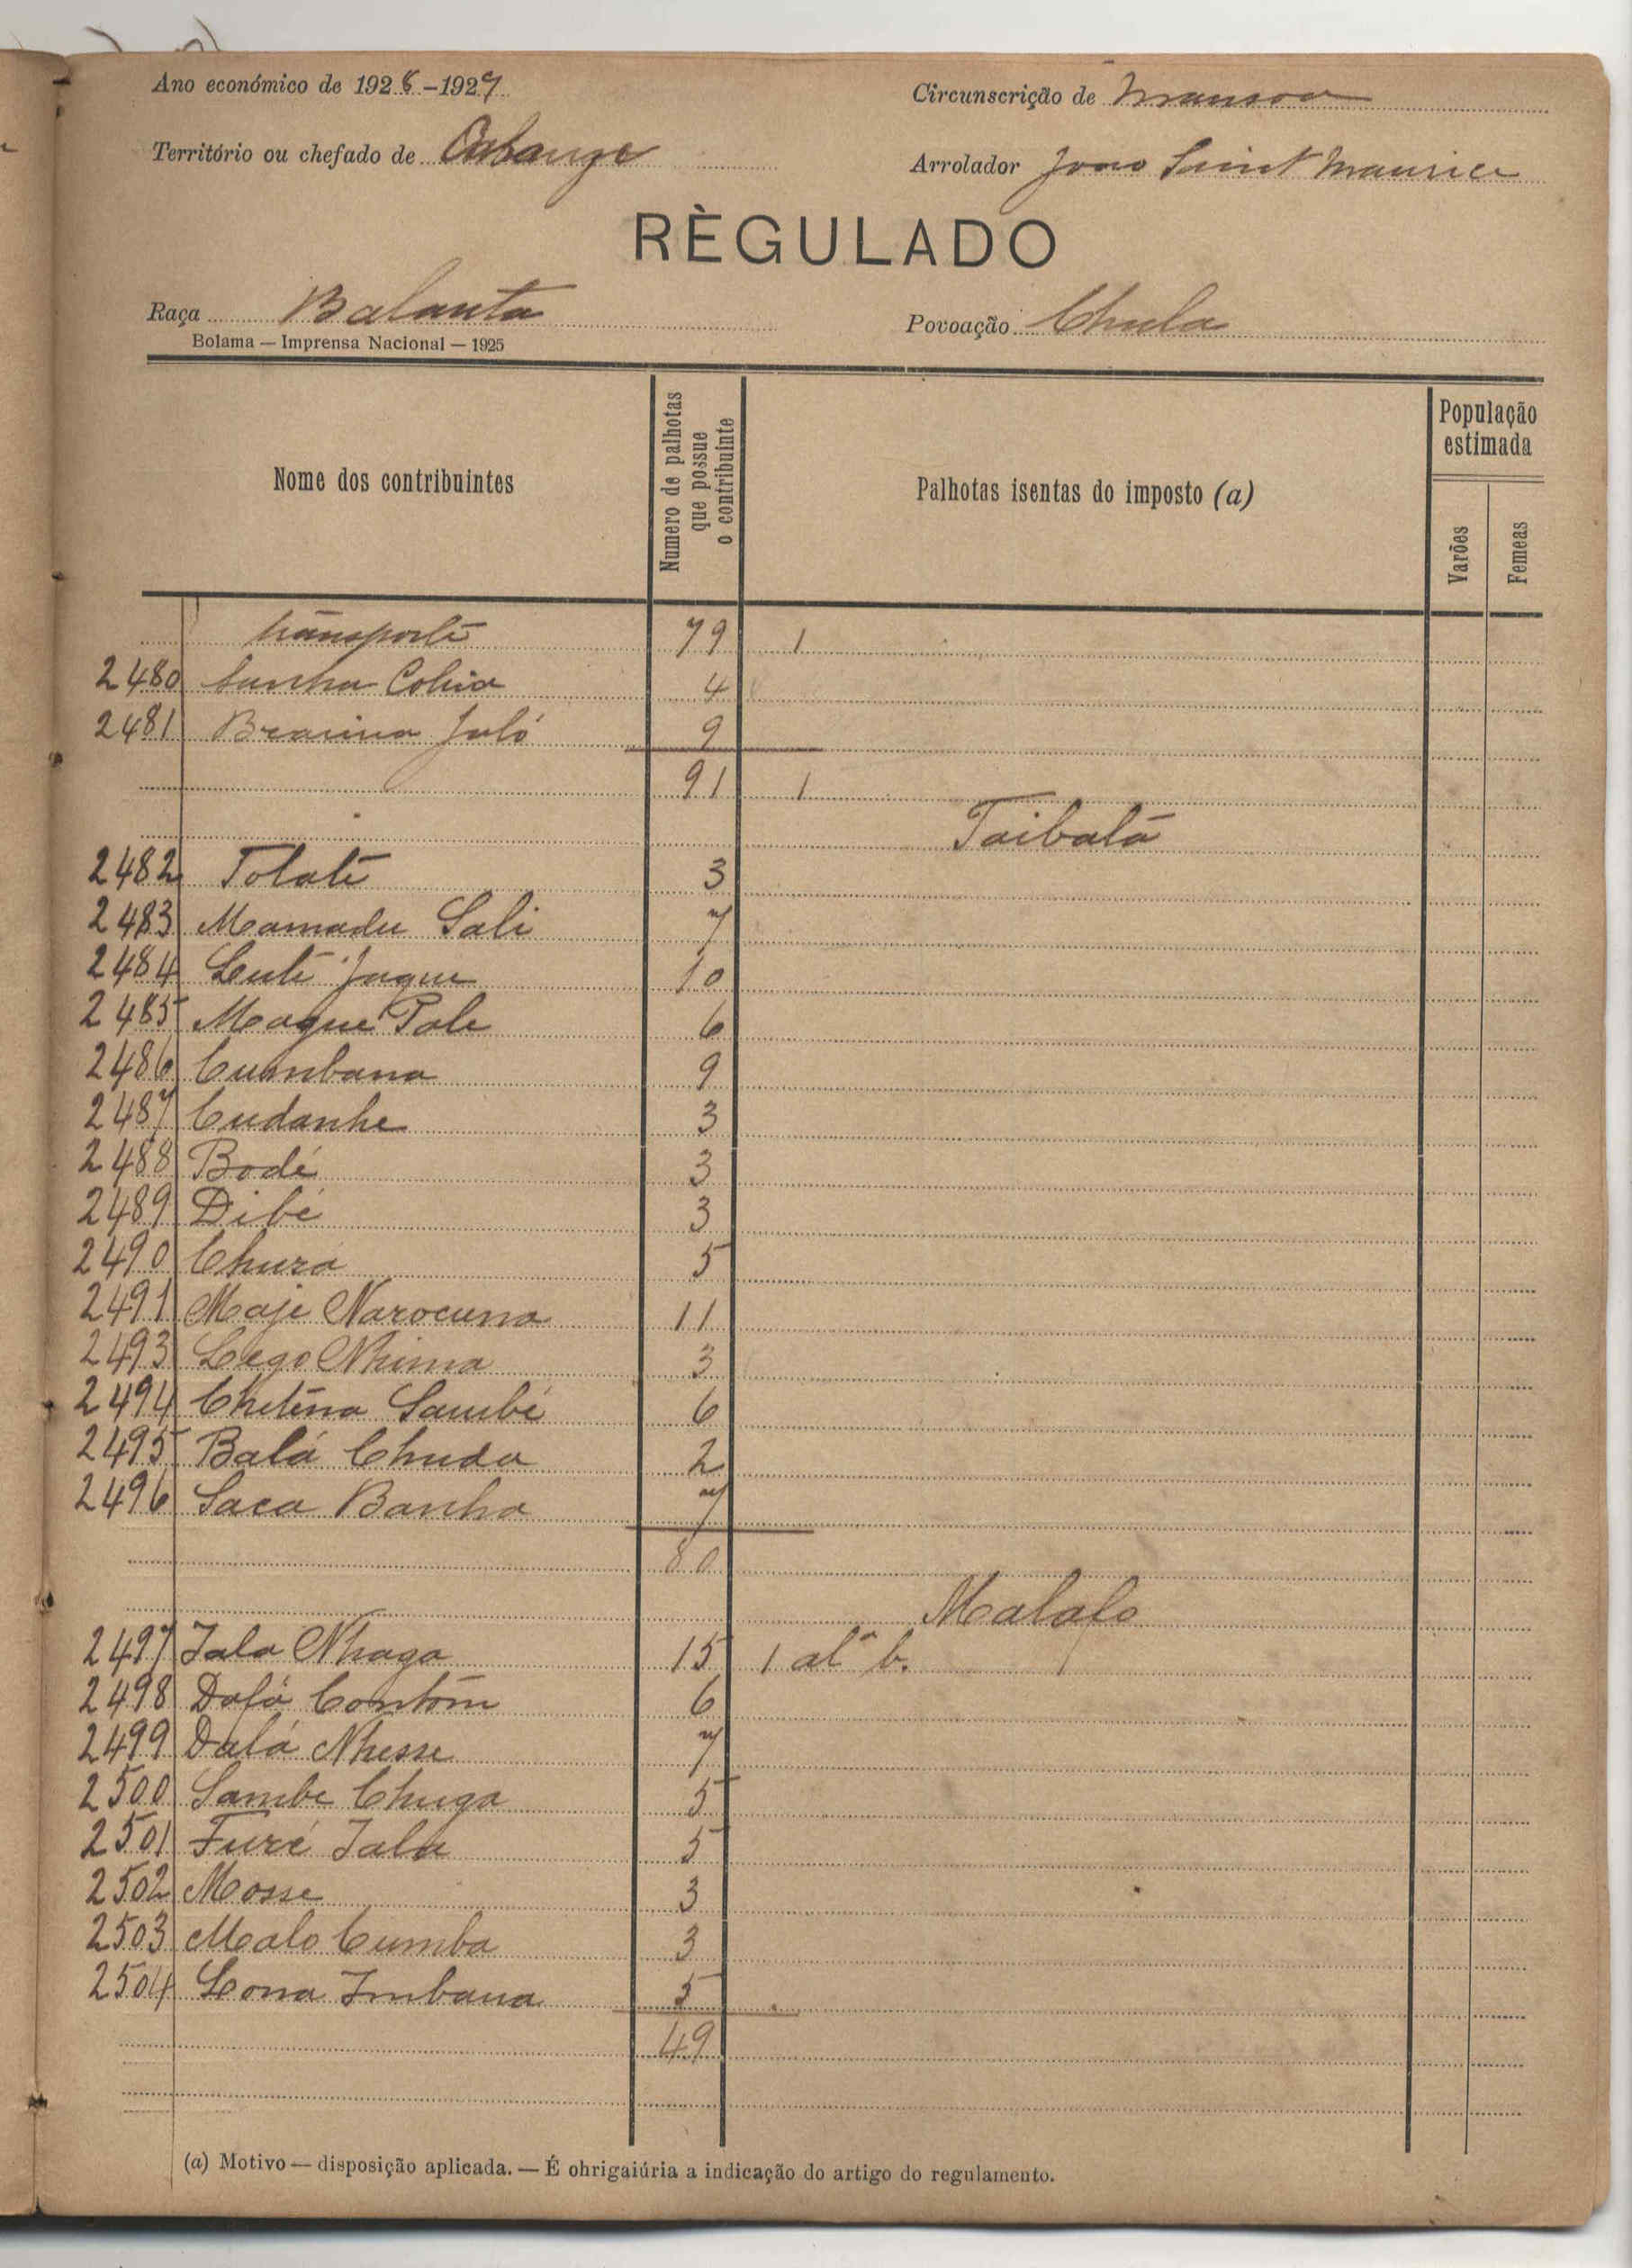 Ano económico de 1928-1929
Circunscrição de Mansoa
Território ou chefado de
Arrolador João Saint Maurice
RÈGULADO
Raça Balanta
Povoação Chula
Bolama — Imprensa Nacional — 1925
Nome dos contribuintes
Numero de palhotas que possue o contribuinte
Palhotas isentas do imposto (a)
População estimada
Varões
Femeas
transporte 79 1
2480 Sunha 4
2481 Braima Jaló 9
91 1
Taibatá
2482 Tolaté 3
2483 Mamadu Sali 7
2484 Leuté Jaque 10
2485 Maque Pale 6
2486 Cumbana 9
2487 Cudanhe 3
2488 Bodé 3
2489 Dibé 3
2490 Churá 5
2491 Maje Narocuna 11
2493 Lego Nhima 3
2494 Chiténa Sambé 6
2495 Balá Chuda 2
2496 Saca Banha 7
80
Malafo
2497 Iala Nhaga 15 1 alª b.
2498 Dafá Contôm 6
2499 Dalá Nhesse 7
2500 Sambe Chuga 5
2501 Furé Iala 5
2502 Mosse 3
2503 Malo Cumba 3
2504 Lona Imbana 5
49
(a) Motivo — disposição aplicada. — É ohrigaiúria a indicação do artigo do regulamento.